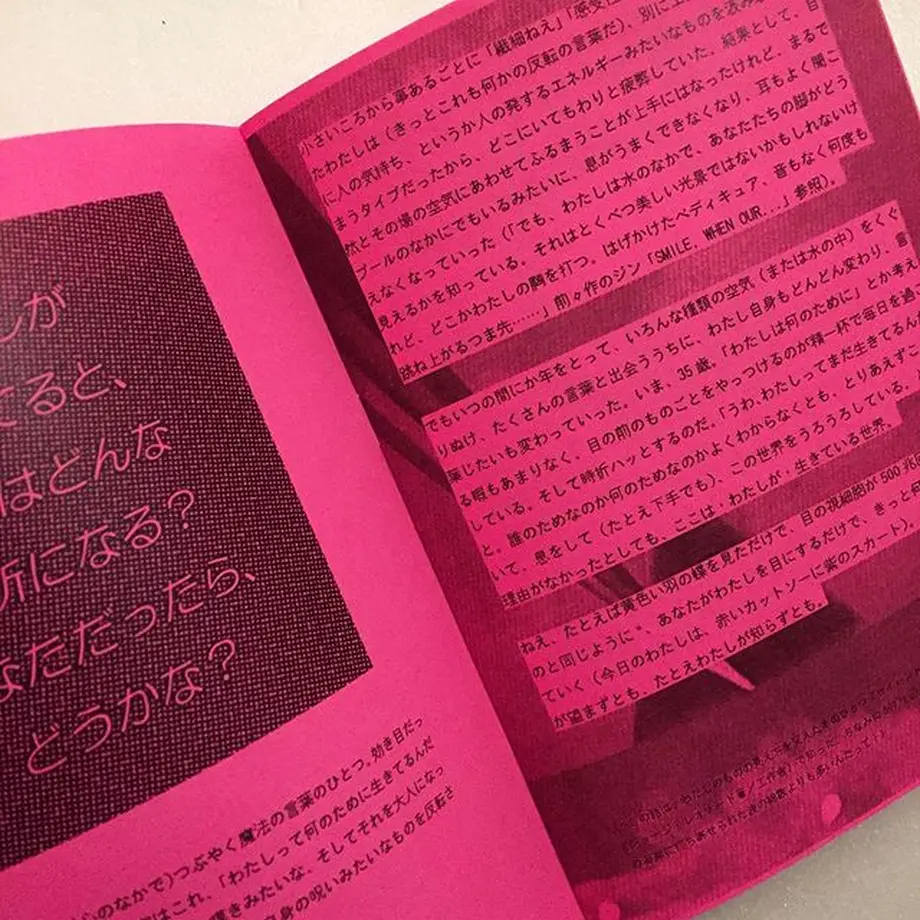 しが
てると、
はどんな
所になる?
なただったら、
どうかな?
心のなかで)つぶやく魔法の言葉のひとつ。効き目だっ
はこれ、「わたしって何のために生きてるんだ
嘆きみたいな、そしてそれを大人になっ
自身の呪いみたいなものを反転さ
小さいころから事あるごとに「繊細ねえ」「感受性
たわたしは(きっとこれも何かの反転の言葉だ)、別に
に人の気持ち、というか人の発するエネルギーみたいなものを読み
まうタイプだったから、どこにいてもわりと疲弊していた。結果として、自
然とその場の空気にあわせてふるまうことが上手にはなったけれど、まるで
プールのなかにでもいるみたいに、息がうまくできなくなり、耳もよく聞こ
えなくなっていった(「でも、わたしは水のなかで、あなたたちの脚がどう
見えるかを知っている。それはとくべつ美しい光景ではないかもしれないけ
れど、どこかわたしの胸を打つ。はげかけたペディキュア、音もなく何度も
跳ね上がるつま先……」前々作のジン「SMILE, WHEN OUR...」参照)。
でもいつの間にか年をとって、いろんな種類の空気(または水の中)をくぐ
りぬけ、たくさんの言葉と出会ううちに、わたし自身もどんどん変わり、言
葉じたいも変わっていった。いま、35歳。「わたしは何のために」とか考え
る暇もあまりなく、目の前のものごとをやっつけるのが精一杯で毎日を過
している。そして時折ハッとするのだ。「うわ、わたしってまだ生きてるん
と。誰のためなのか何のためなのかよくわからなくとも、とりあえず
いて、息をして(たとえ下手でも)、この世界をうろうろしている。
理由がなかったとしても、ここは、わたしが、生きている世界。
ねえ、たとえば黄色い羽の蝶を見ただけで、目の視細胞が500兆
のと同じように*、あなたがわたしを目にするだけで、きっと
ていく(今日のわたしは、赤いカットソーに紫のスカート)。
が望まずとも、たとえわたしが知らずとも。